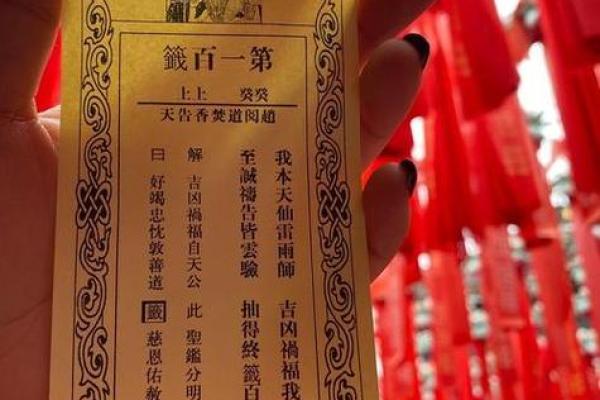 第一百籤
癸癸 上上
趙閱道焚香告天
我本天仙雷雨師 吉凶禍福我
至誠禱告皆雲驗 抽得終籤百
解 吉凶禍福自天公 此 聖鑑分明
曰 好竭忠忱敦善道 籤 慈恩佑